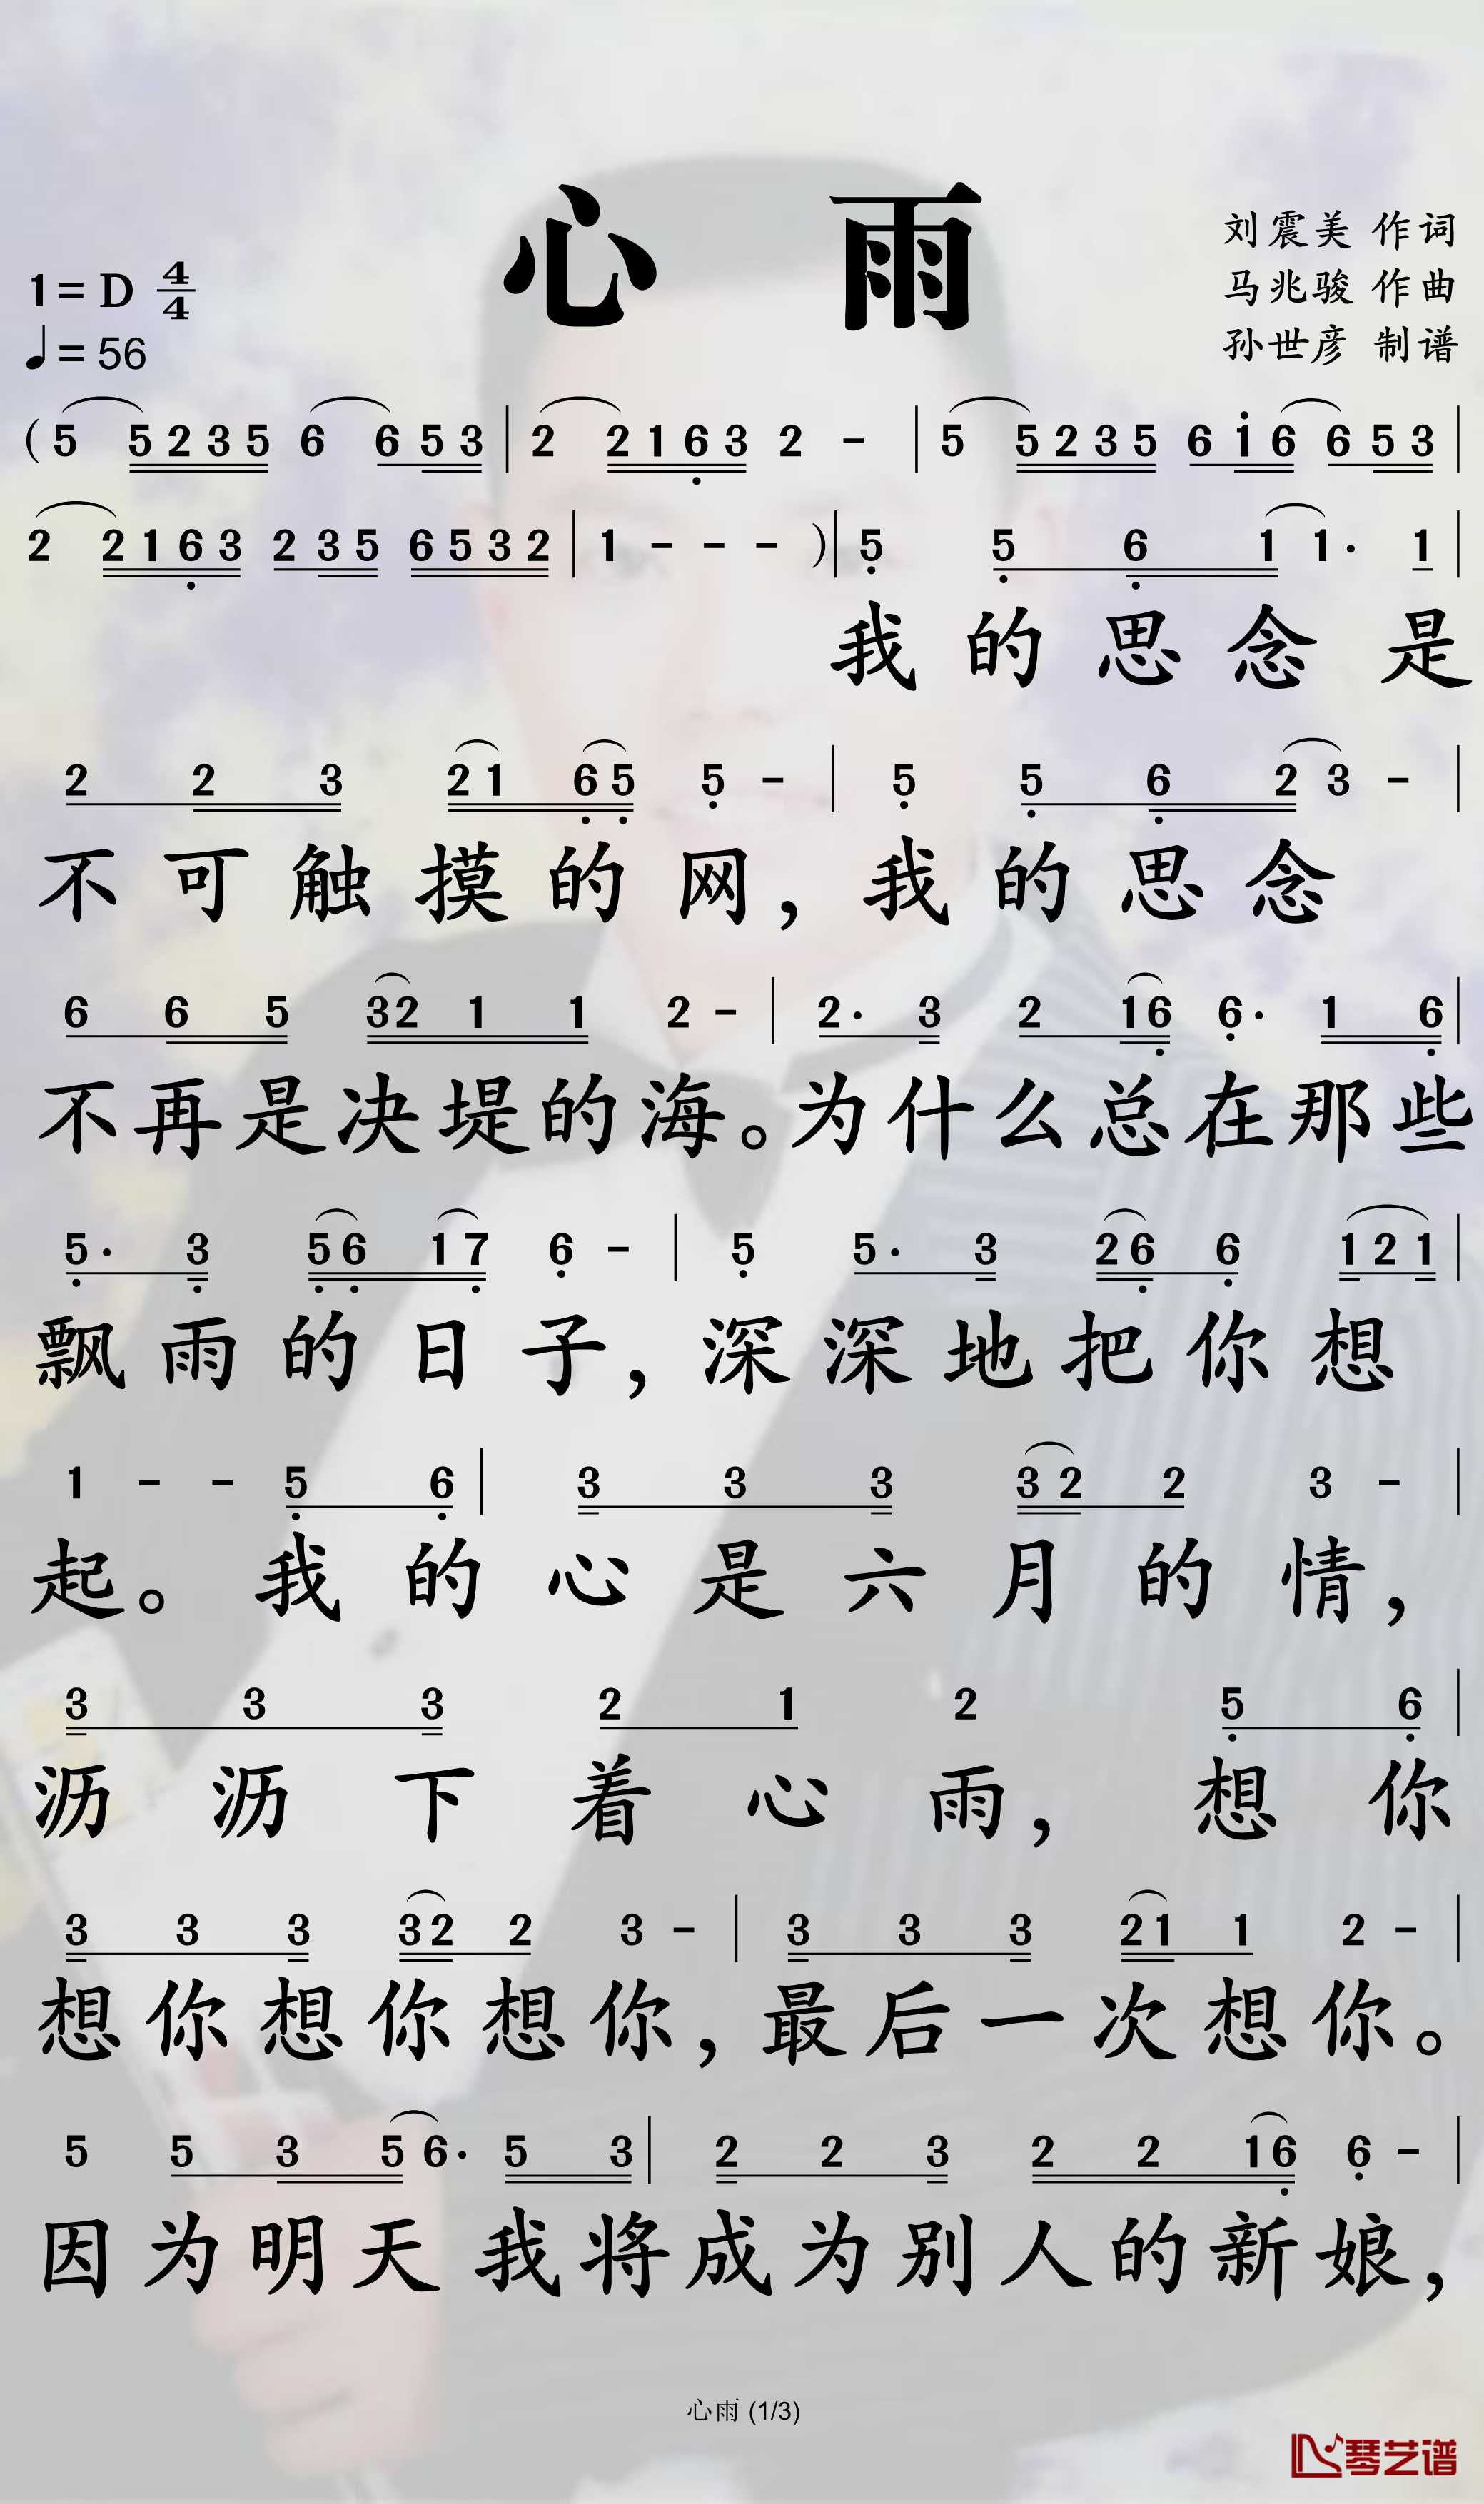 心 雨
刘震美 作词
马兆骏 作曲
孙世彦 制谱
1= D 4/4
♩= 56
( 5 5 2 3 5 6 6 5 3 | 2 2 1 6 3 2 - | 5 5 2 3 5 6 1 6 6 5 3 |
2 2 1 6 3 2 3 5 6 5 3 2 | 1 - - - ) | 5 5 6 1 1· 1 |
我 的 思 念 是
2 2 3 2 1 6 5 5 - | 5 5 6 2 3 - |
不 可 触 摸 的 网, 我 的 思 念
6 6 5 3 2 1 1 2 - | 2· 3 2 1 6 6· 1 6 |
不 再 是 决 堤 的 海。 为 什 么 总 在 那 些
5· 3 5 6 1 7 6 - | 5 5· 3 2 6 6 1 2 1 |
飘 雨 的 日 子, 深 深 地 把 你 想
1 - - 5 6 | 3 3 3 3 2 2 3 - |
起。 我 的 心 是 六 月 的 情,
3 3 3 2 1 2 5 6 |
沥 沥 下 着 心 雨, 想 你
3 3 3 3 2 2 3 - | 3 3 3 2 1 1 2 - |
想 你 想 你 想 你, 最 后 一 次 想 你。
5 5 3 5 6· 5 3 | 2 2 3 2 2 1 6 6 - |
因 为 明 天 我 将 成 为 别 人 的 新 娘,
心雨 (1/3)
琴艺谱